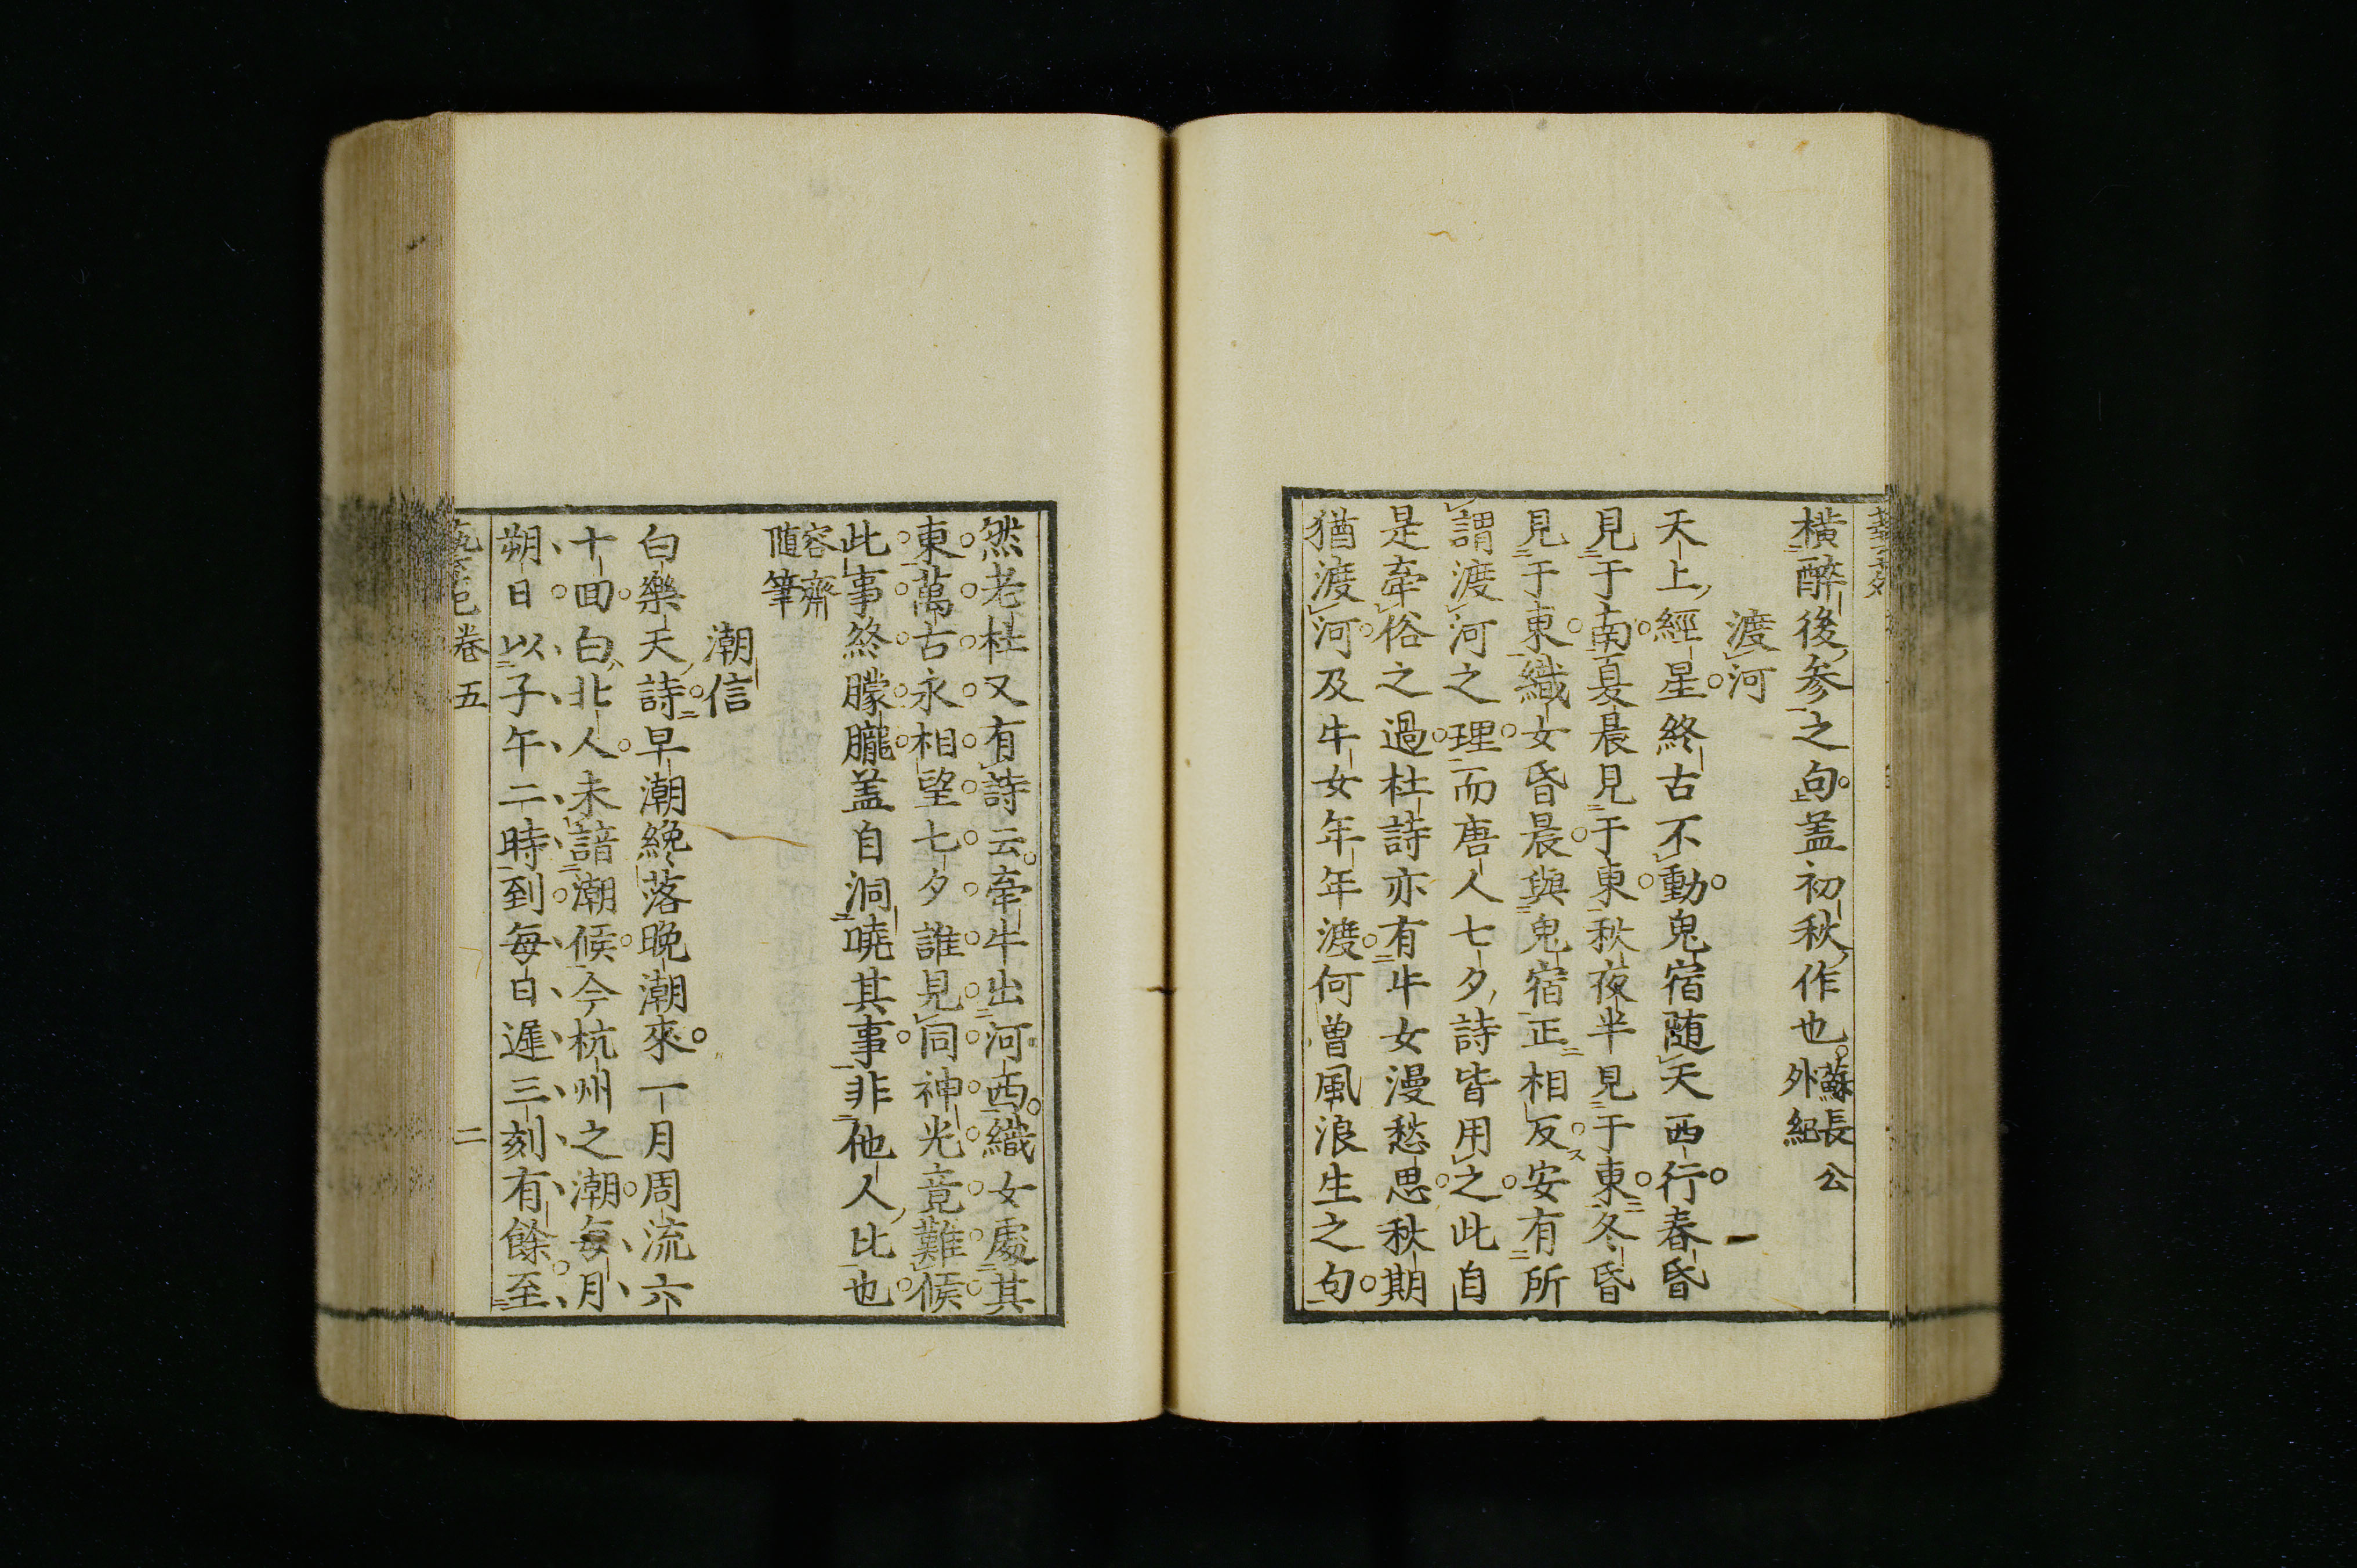 橫醉後参之句盖初秋作也蘇長公
外紀
渡河
天上經星終古不動鬼宿随天西行春昏
見于南夏晨見于東秋夜半見于東冬昏
見于東織女昏晨與鬼宿正相反安有所
謂渡河之理而唐人七夕詩皆用之此自
是牽俗之過杜詩亦有牛女漫愁思秋期
猶渡河及牛女年年渡何曽風浪生之句
然老杜又有詩云牽牛出河西織女處其
東萬古永相望七夕誰見同神光竟難候
此事終朦朧盖自洞曉其事非他人比也
容齋
随筆
潮信
白樂天詩早潮纔落晚潮來一月周流六
十回白北人未諳潮候今杭州之潮每月
朔日以子午二時到每日遲三刻有餘至
卷五 二